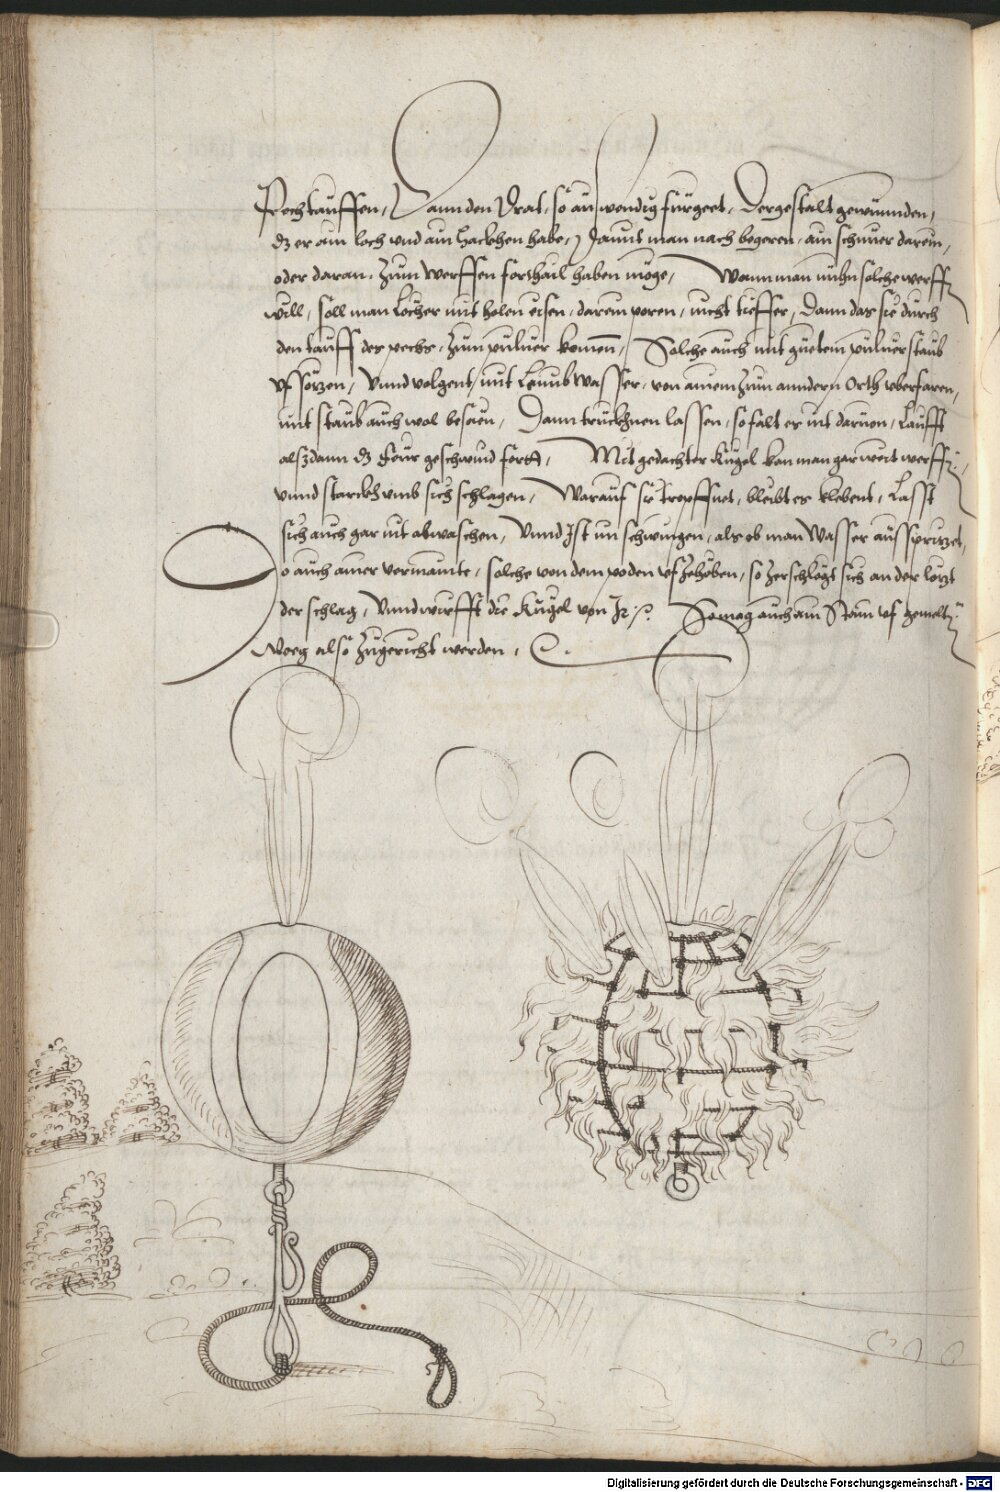 Pech tauffen, Dann den Drat, so außwendig fürgeet, Dergestalt gewunnden,
dz er ain loch und ain Hackhen habe, damit man nach begeren, ain schnuer darein,
oder daran, zum werffen forthail haben möge, Wann man nuhn solche werffen
will, soll man Löcher mit holen eisen, darein poren, nicht tieffer, Dann das sie durch
den tauff des pechs, zum puluer komen, Solche auch mit guetem puluerstaub
Unnd volgent, mit Leimb Wasser, von ainem zum anndern Orth überfaren,
mit staub auch wol besäen, Dann truckhnen lassen, so falt er nit daruon, Laufft
alßdann dz feur geschwind fort, Mit gedachter Kugel kan man gar weit werffen,
unnd starckh umb sich schlagen, Warauf sie tropffnet, bleibt es klebent, Lasst
sich auch gar nit abwaschen, Unnd Ist im schwingen, als ob man Wasser aussspritzet,
So auch ainer vermainte, solche von dem poden ufzehöben, so zerschlögt sich an der lötzt
der schlag, Unnd würfft die Kugel von Ir, So mag auch ain Stain uf gemelten
Weeg also zugericht werden,
Digitalisierung gefördert durch die Deutsche Forschungsgemeinschaft - DFG